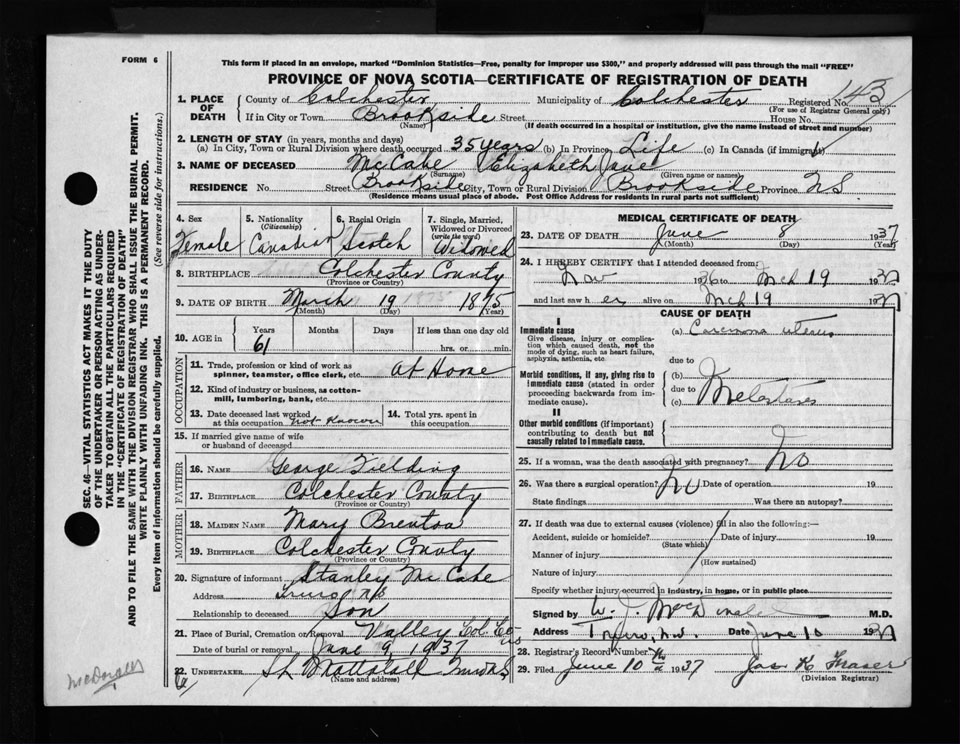 FORM 6
This form if placed in an envelope, marked "Dominion Statistics—Free, penalty for improper use $300," and properly addressed will pass through the mail "FREE"
PROVINCE OF NOVA SCOTIA—CERTIFICATE OF REGISTRATION OF DEATH
1. PLACE OF DEATH
County of Colchester Municipality of Colchester Registered No. 143
(For use of Registrar General only)
If in City or Town Brookside Street House No.
(Name) (If death occurred in a hospital or institution, give the name instead of street and number)
2. LENGTH OF STAY (in years, months and days)
(a) In City, Town or Rural Division where death occurred 35 years (b) In Province Life (c) In Canada (if immigrant)
3. NAME OF DECEASED McCabe Elizabeth Jane
(Surname) (Given name or names)
RESIDENCE No. Street Brookside City, Town or Rural Division Brookside Province NS
(Residence means usual place of abode. Post Office Address for residents in rural parts not sufficient)
4. Sex Female
5. Nationality (Citizenship) Canadian
6. Racial Origin Scotch
7. Single, Married, Widowed or Divorced (write the word) Widowed
8. BIRTHPLACE Colchester County
(Province or Country)
9. DATE OF BIRTH March 19 1875
(Month) (Day) (Year)
10. AGE in Years Months Days If less than one day old
61 hrs. or min.
OCCUPATION
11. Trade, profession or kind of work as spinner, teamster, office clerk, etc. At Home
12. Kind of industry or business, as cotton-mill, lumbering, bank, etc.
13. Date deceased last worked at this occupation not known
14. Total yrs. spent in this occupation
15. If married give name of wife or husband of deceased
FATHER
16. NAME George Fielding
17. BIRTHPLACE Colchester County
(Province or Country)
MOTHER
18. MAIDEN NAME Mary Brenton
19. BIRTHPLACE Colchester County
(Province or Country)
20. Signature of informant Stanley McCabe
Address Truro NS
Relationship to deceased Son
21. Place of Burial, Cremation or Removal Valley Col. Co NS
Date of burial or removal June 9, 1937
22. UNDERTAKER Mattatall Truro N.S
(Name and address)
MEDICAL CERTIFICATE OF DEATH
23. DATE OF DEATH June 8 1937
(Month) (Day) (Year)
24. I HEREBY CERTIFY that I attended deceased from:
Nov 1936 to Mch 19 1937
and last saw her alive on Mch 19 1937
CAUSE OF DEATH
I
Immediate cause
Give disease, injury or complication which caused death, not the mode of dying, such as heart failure, asphyxia, asthenia, etc
(a) Carcinoma uterus
due to
Morbid conditions, if any, giving rise to immediate cause (stated in order proceeding backwards from immediate cause).
(b)
due to
(c) Metastases
II
Other morbid conditions (if important) contributing to death but not causally related to immediate cause.
25. If a woman, was the death associated with pregnancy? No
26. Was there a surgical operation? No Date of operation 19
State findings Was there an autopsy?
27. If death was due to external causes (violence) fill in also the following:—
Accident, suicide or homicide? Date of injury 19
(State which)
Manner of injury
(How sustained)
Nature of injury
Specify whether injury occurred in industry, in home, or in public place
Signed by W. J. McDonald M.D.
Address Truro, N.S. Date June 10 1937
28. Registrar's Record Number
29. Filed June 10th 1937 Jas. K. Fraser
(Division Registrar)
SEC. 46—VITAL STATISTICS ACT MAKES IT THE DUTY
OF THE UNDERTAKER OR PERSON ACTING AS UNDER-
TAKER TO OBTAIN ALL THE PARTICULARS REQUIRED
IN THE "CERTIFICATE OF REGISTRATION OF DEATH"
AND TO FILE THE SAME WITH THE DIVISION REGISTRAR WHO SHALL ISSUE THE BURIAL PERMIT.
WRITE PLAINLY WITH UNFADING INK. THIS IS A PERMANENT RECORD.
Every item of information should be carefully supplied. (See reverse side for instructions.)
McDonald